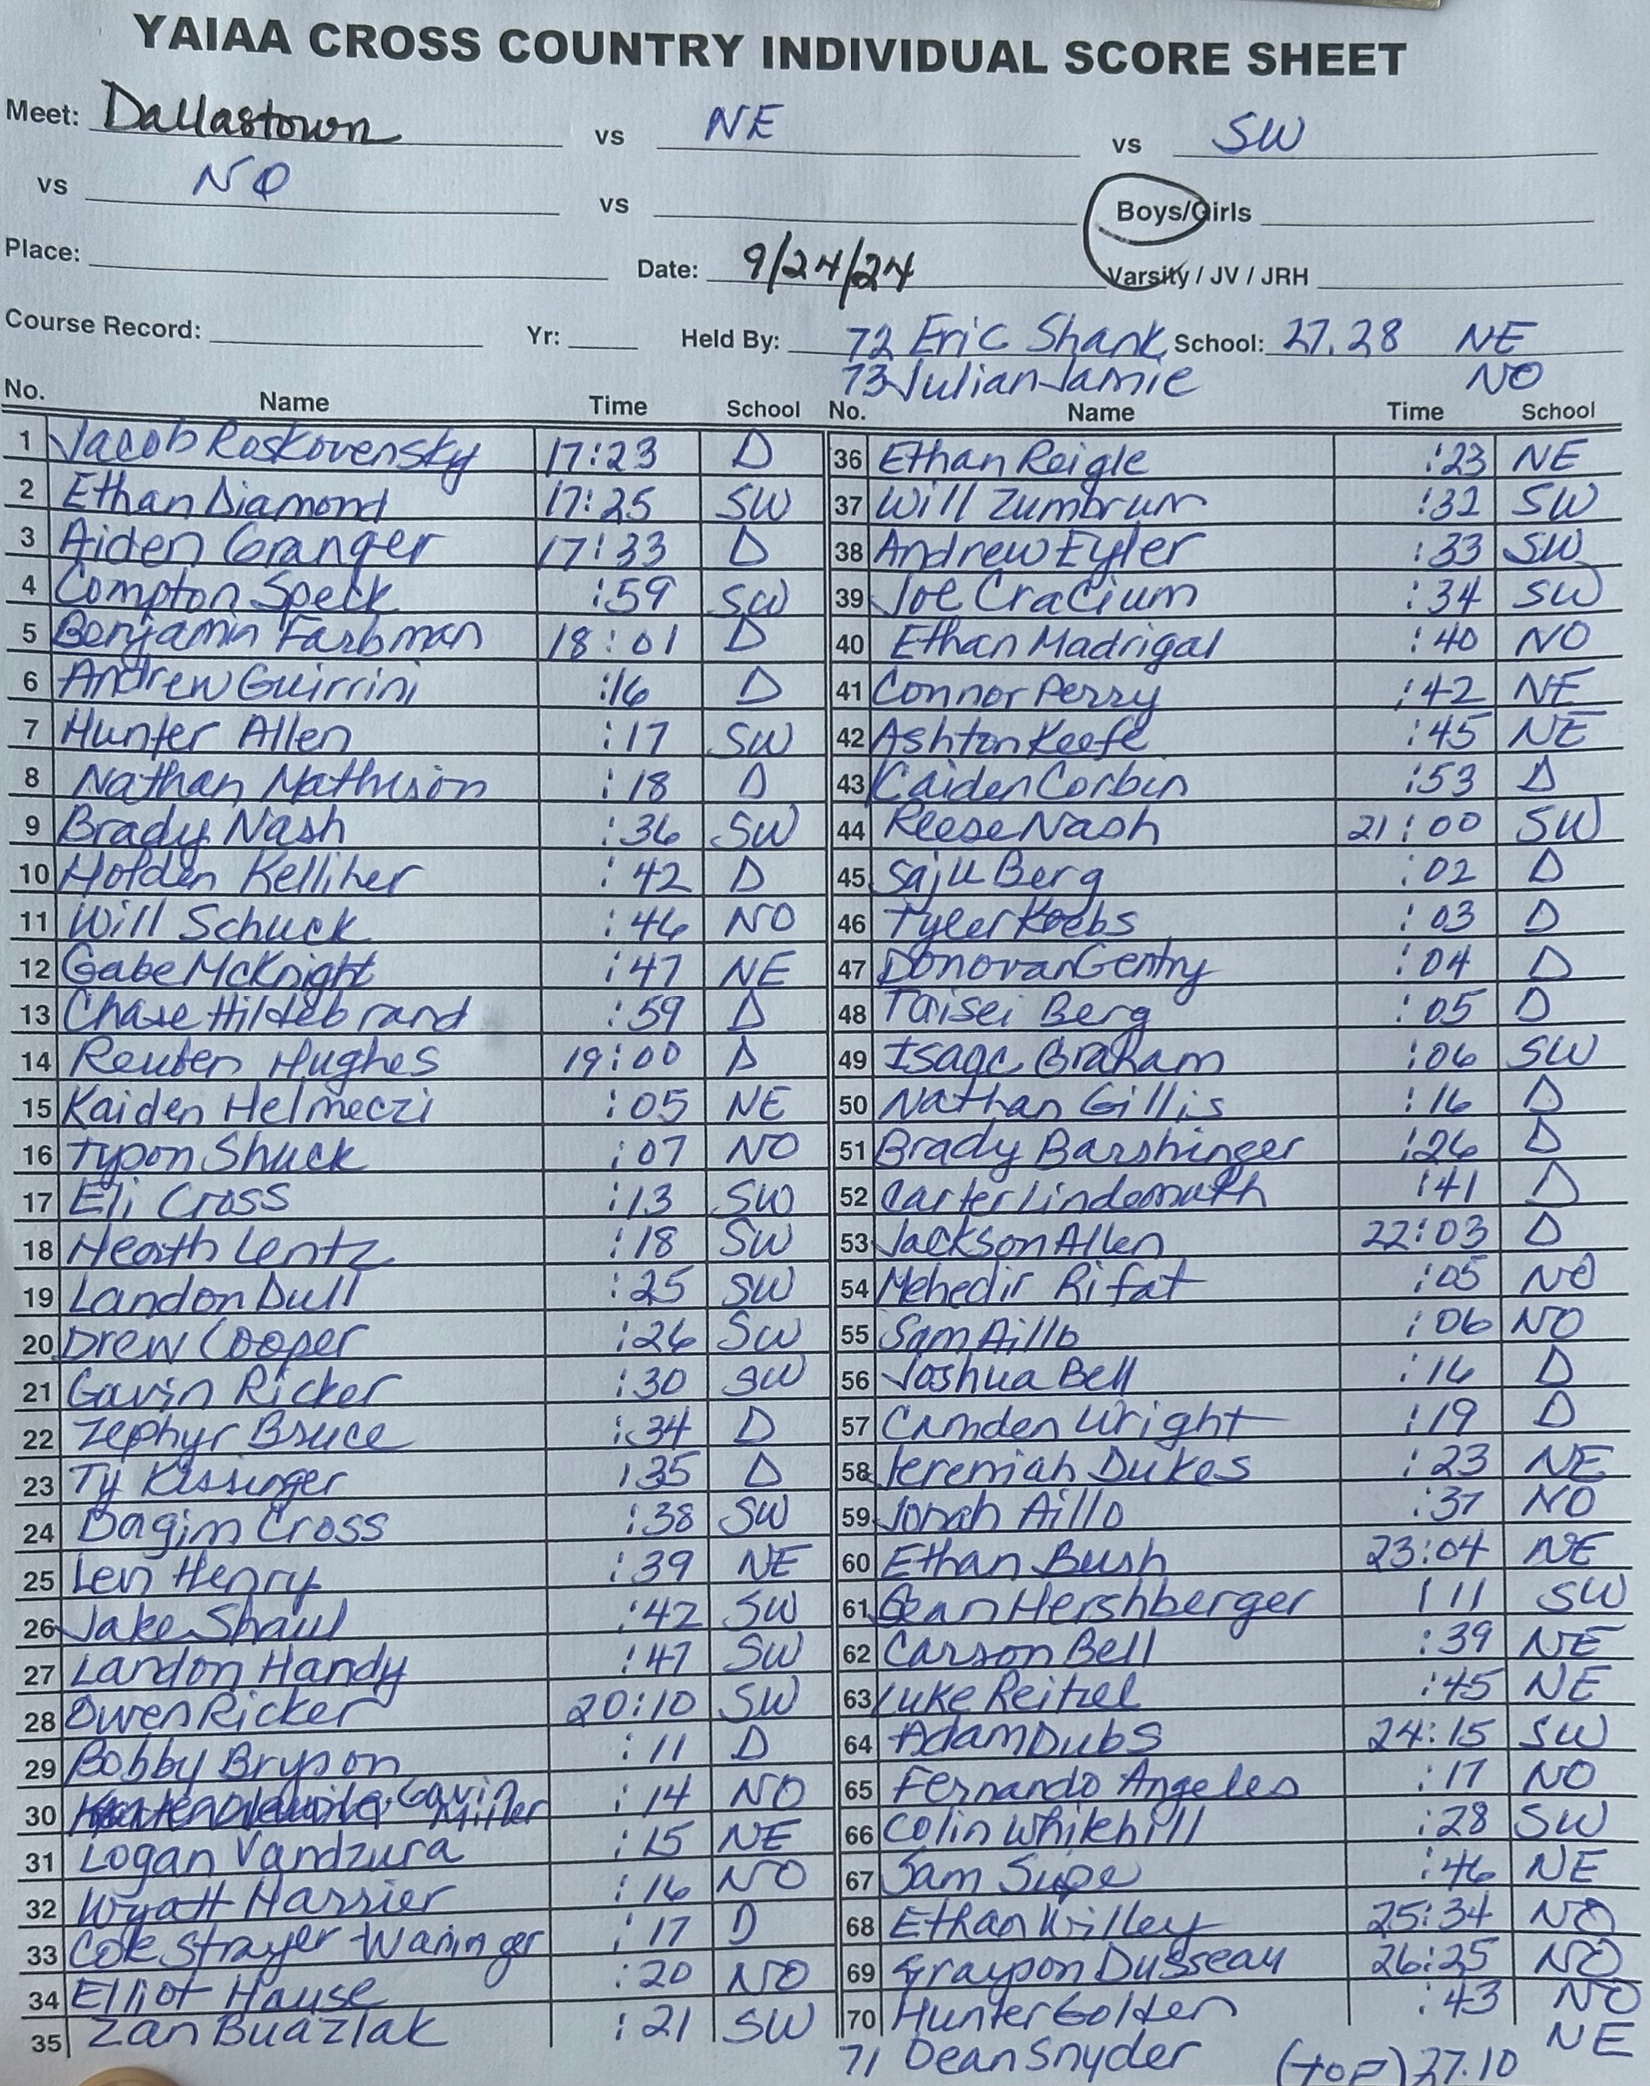 YAIAA CROSS COUNTRY INDIVIDUAL SCORE SHEET
Meet: Dallastown vs NE vs SW
vs NO vs Boys/Girls
Place: Date: 9/24/24 Varsity / JV / JRH
Course Record: Yr: Held By: 72 Eric Shank School: 27.28 NE
73 Julian Jamie NO
No. Name Time School No. Name Time School
1 Jacob Roskovensky 17:23 D
2 Ethan Diamond 17:25 SW
3 Aiden Granger 17:33 D
4 Compton Speck :59 SW
5 Benjamin Farbman 18:01 D
6 Andrew Guirrini :16 D
7 Hunter Allen :17 SW
8 Nathan Mathuion :18 D
9 Brady Nash :36 SW
10 Holden Kelliher :42 D
11 Will Schuck :46 NO
12 Gabe McKnight :47 NE
13 Chase Hildebrand :59 D
14 Reuben Hughes 19:00 D
15 Kaiden Helmeczi :05 NE
16 Tyson Shuck :07 NO
17 Eli Cross :13 SW
18 Heath Lentz :18 SW
19 Landon Dull :25 SW
20 Drew Cooper :26 SW
21 Gavin Ricker :30 SW
22 Zephyr Bruce :34 D
23 Ty Kissinger :35 D
24 Dagim Cross :38 SW
25 Levi Henry :39 NE
26 Jake Shaul :42 SW
27 Landon Handy :47 SW
28 Owen Ricker 20:10 SW
29 Bobby Bryson :11 D
30 Gavin Miller :14 NO
31 Logan Vandzura :15 NE
32 Wyatt Harrier :16 NO
33 Cole Strayer-Waninger :17 D
34 Elliot Hause :20 NO
35 Zan Buazlak :21 SW
36 Ethan Reigle :23 NE
37 Will Zumbrum :32 SW
38 Andrew Eyler :33 SW
39 Joe Cracium :34 SW
40 Ethan Madrigal :40 NO
41 Connor Perry :42 NE
42 Ashton Keefe :45 NE
43 Kaiden Corbin :53 D
44 Reese Nash 21:00 SW
45 Saju Berg :02 D
46 Tyler Krebs :03 D
47 Donovan Gentry :04 D
48 Taisei Berg :05 D
49 Isaac Graham :06 SW
50 Nathan Gillis :16 D
51 Brady Barshinger :26 D
52 Carter Lindemuth :41 D
53 Jackson Allen 22:03 D
54 Mehedir Rifat :05 NO
55 Sam Aillo :06 NO
56 Joshua Bell :16 D
57 Camden Wright :19 D
58 Jeremiah Dukes :23 NE
59 Jonah Aillo :37 NO
60 Ethan Bush 23:04 NE
61 Sean Hershberger :11 SW
62 Carson Bell :39 NE
63 Luke Reitzel :45 NE
64 Adam Dubs 24:15 SW
65 Fernando Angeles :17 NO
66 Colin Whitehill :28 SW
67 Sam Supe :46 NE
68 Ethan Willey 25:34 NO
69 Grayson Dusseau 26:25 NO
70 Hunter Golden :43 NO
71 Dean Snyder (top) 27.10 NE